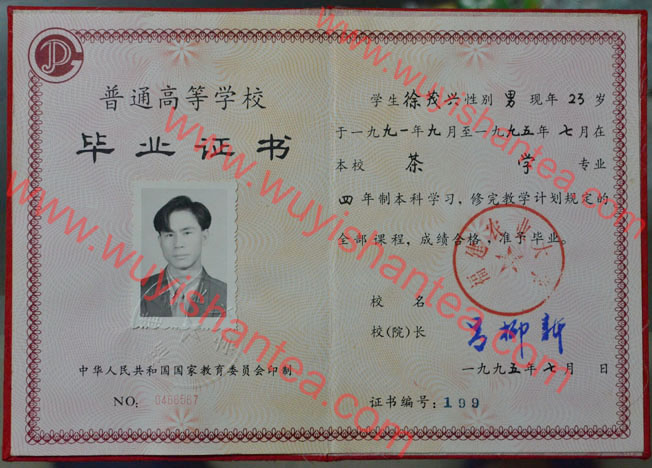 普通高等学校
毕业证书
中华人民共和国国家教育委员会印制
NO: 0486567
学生徐茂兴性别男现年23岁
于一九九一年九月至一九九五年七月在
本校茶学专业
四年制本科学习,修完教学计划规定的
全部课程,成绩合格,准予毕业。
福建农业大学
校名
校(院)长 吕柳新
一九九五年七月 日
证书编号:199
www.wuyishantea.com
www.wuyishantea.com
www.wuyishantea.com
www.wuyishantea.com